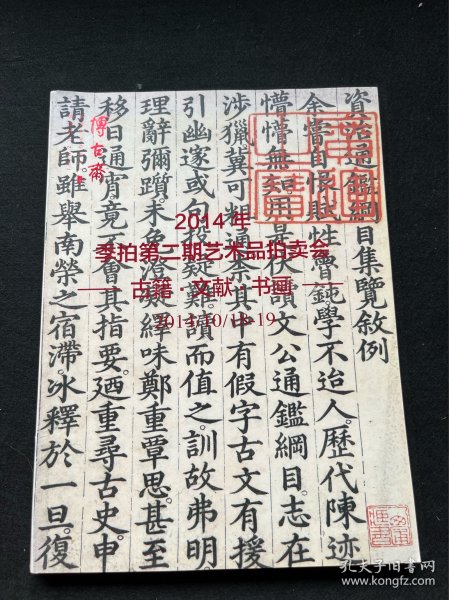 資治通鑑綱目集覽敘例
余嘗自恨賦性魯鈍學不迨人。歷代陳迹
懵懵無知。用是伏讀文公通鑑綱目。志在
涉獵。冀可粗通。柰其中有假字古文有援
引幽邃或句疑難讀而值之。訓故弗明
理辭彌躓。未免澄繹味鄭重覃思。甚至
移日通宵竟不會其指要。迺重尋古史。申
請老師。雖舉南榮之宿滯。冰釋於一旦。復
博古斋
2014年
季拍第二期艺术品拍卖会
古籍·文献·书画
2014/10/18-19
孔夫子旧书网
www.kongfz.com